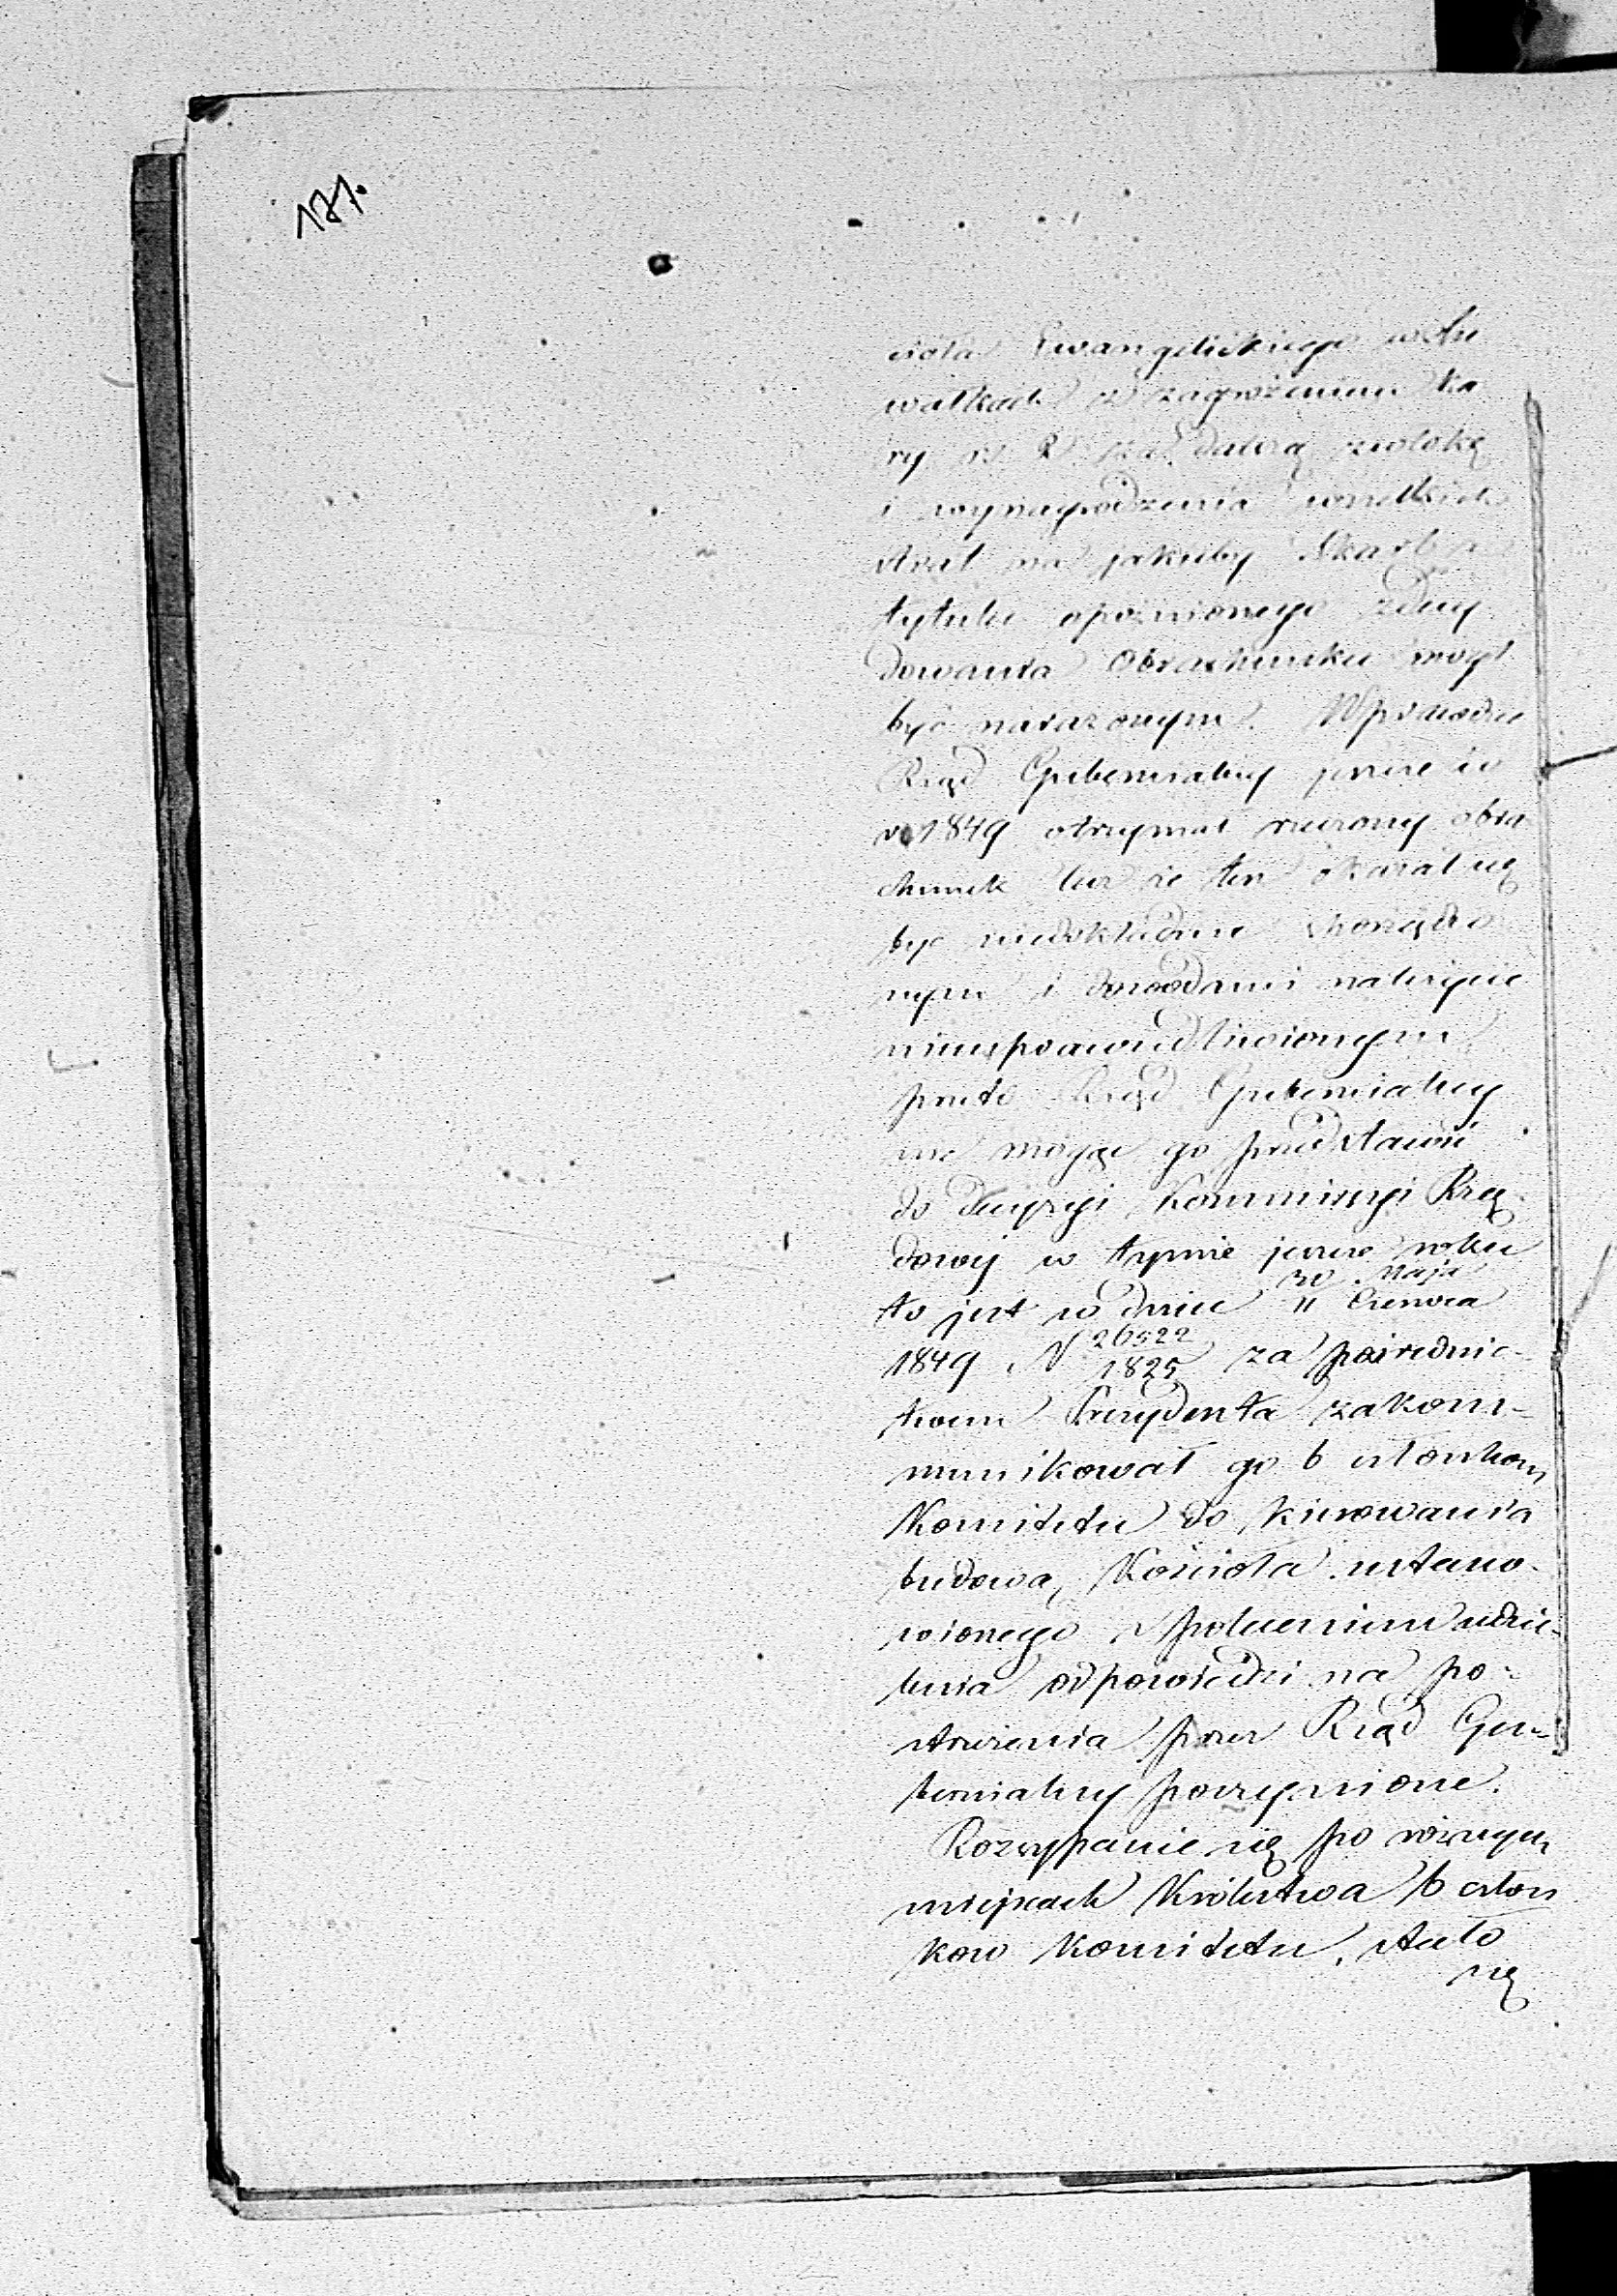 171.
cioła Ewangelickiego w Su
wałkach z zagrożeniem ka
ry rs 2 za dalszą zwłokę
i wynagrodzenia wszelkich
strat na jakieby Skarb z
tytułu opoznionego zdecy
dowania Obrachunku mógł
być narażonym. Wprawdzie
Rząd Gubernialny jeszcze w
r 1849 otrzymał rzeczony obra
chunek lecz że ten okazał się
być niedokładnie sporządzo
nym i dowodami należycie
nieusprawiedliwionym
przeto Rząd Gubernialny
nie mogąc go przedstawić
do decyzyi Kommissyi Rzą-
dowej w tymże jeszcze roku
to jest w dniu 30 Maja / 11 Czerwca
1849 N 26522 / 1825 za pośrednic-
twem Prezydenta zakom-
munikował go 6 członkom
Komitetu do kierowania
budową Kościoła ustano-
wionego z poleceniem udzie-
lenia odpowiedzi na po-
strzeżenia przez Rząd Gu-
bernialny poczynione.
Rozsypanie się po różnych
miejscach Królestwa 6 człon
kow Komitetu, stało
się